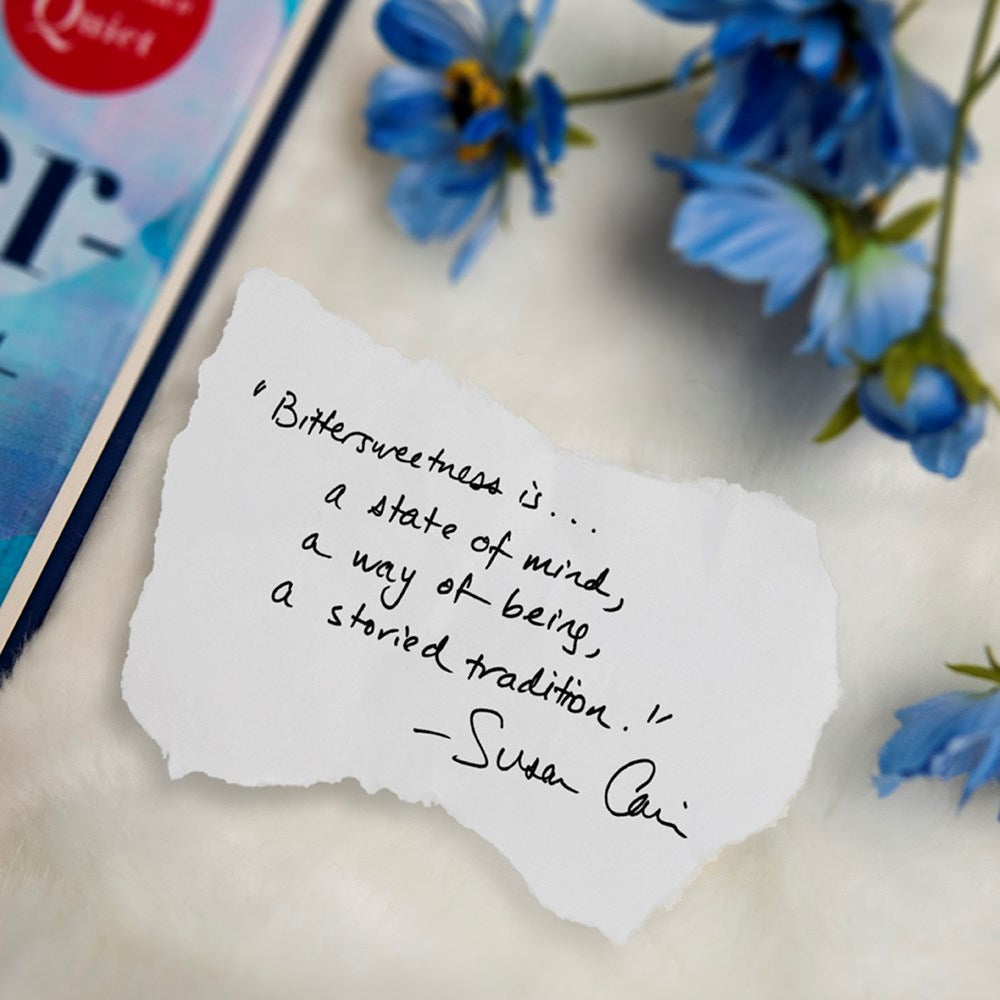 Quiet
er-
"Bittersweetness is...
a state of mind,
a way of being,
a storied tradition."
-Susan Cain